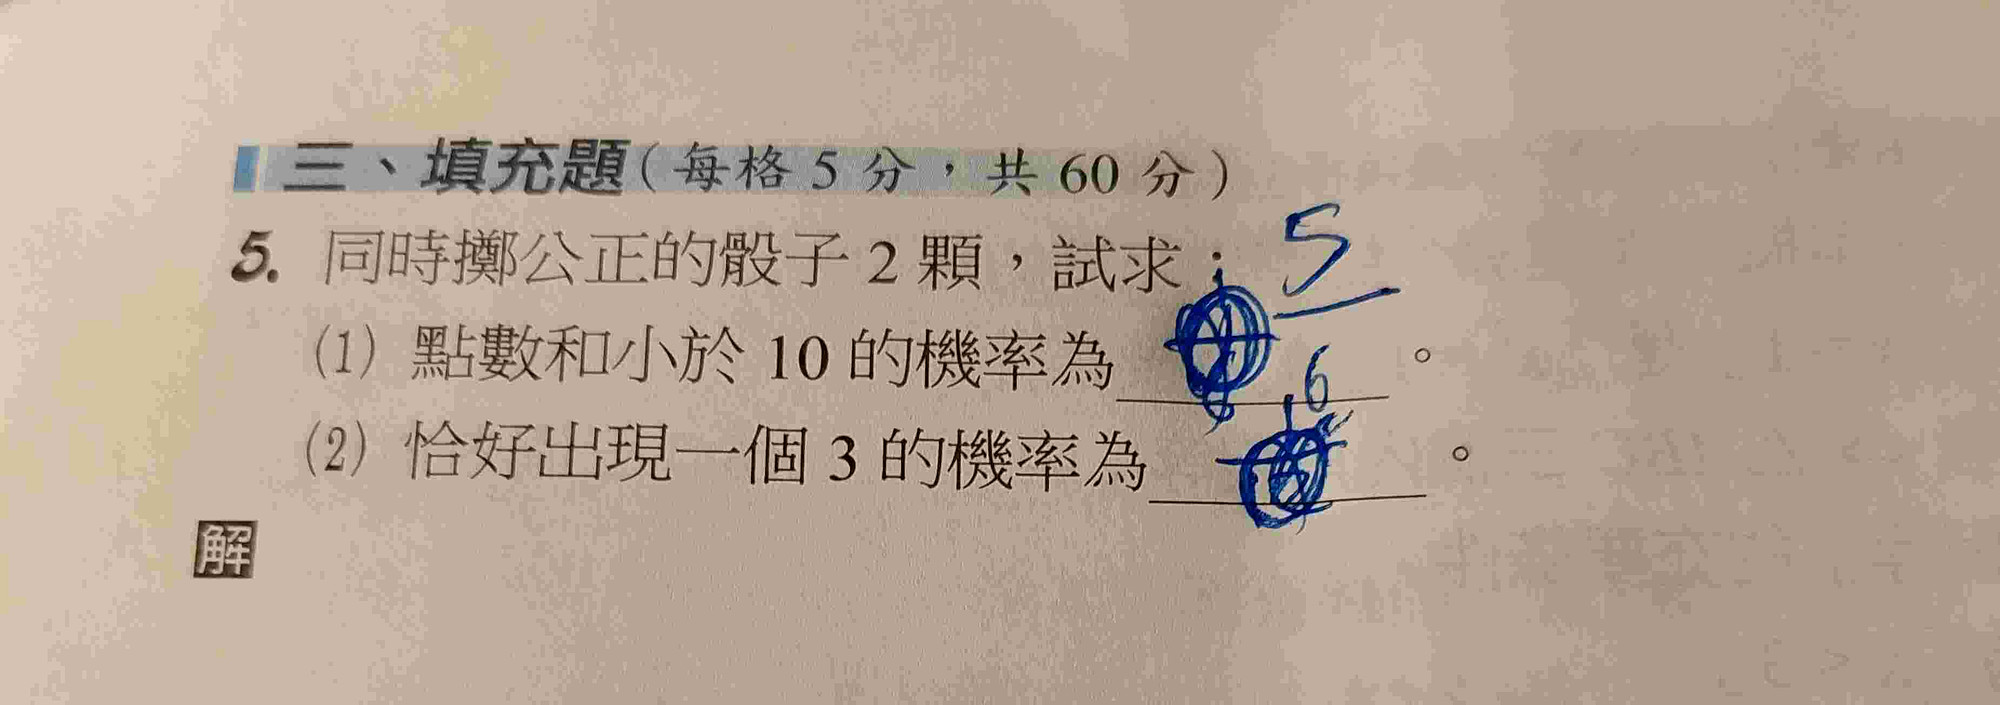 三、填充題(每格 5 分，共 60 分)
5. 同時擲公正的骰子 2 顆，試求：
5
(1) 點數和小於 10 的機率為 。
6
(2) 恰好出現一個 3 的機率為 。
解